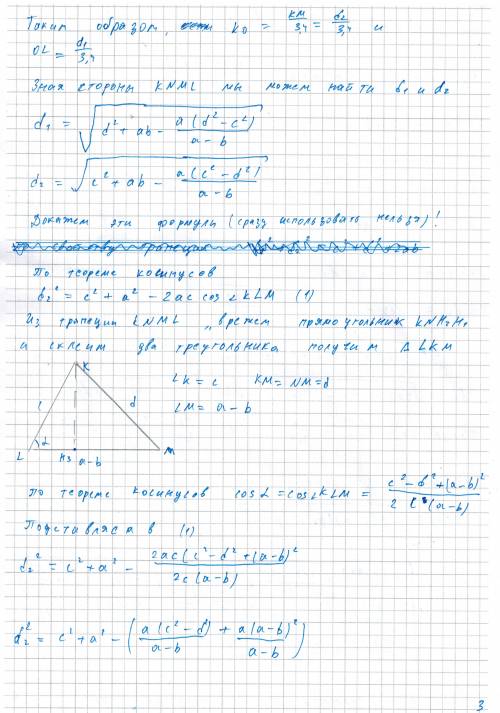 Таким образом, KO = KM/3,4 = d₂/3,4 и
OL = d₁/3,4
Зная стороны KNML мы можем найти d₁ и d₂
d₁ = √(d² + ab - a(d² - c²)/(a - b))
d₂ = √(c² + ab - a(c² - d²)/(a - b))
Докажем эти формулы (сразу использовать нельзя)!
По теореме косинусов
d₂² = c² + a² - 2ac cos ∠KLM (1)
Из трапеции KNML вырежем прямоугольник KNH₂H₁
и склеим два треугольника получим Δ LKM
K
LK = c KM = NM = d
c d
LM = a - b
L α H₃ a - b M
По теореме косинусов cos α = cos ∠KLM = (c² - d² + (a - b)²)/(2 c (a - b))
Подставляя в (1)
d₂² = c² + a² - 2ac(c² - d² + (a - b)²/2c(a - b)
d₂² = c² + a² - (a(c² - d²)/(a - b) + a(a - b)²/(a - b))
3